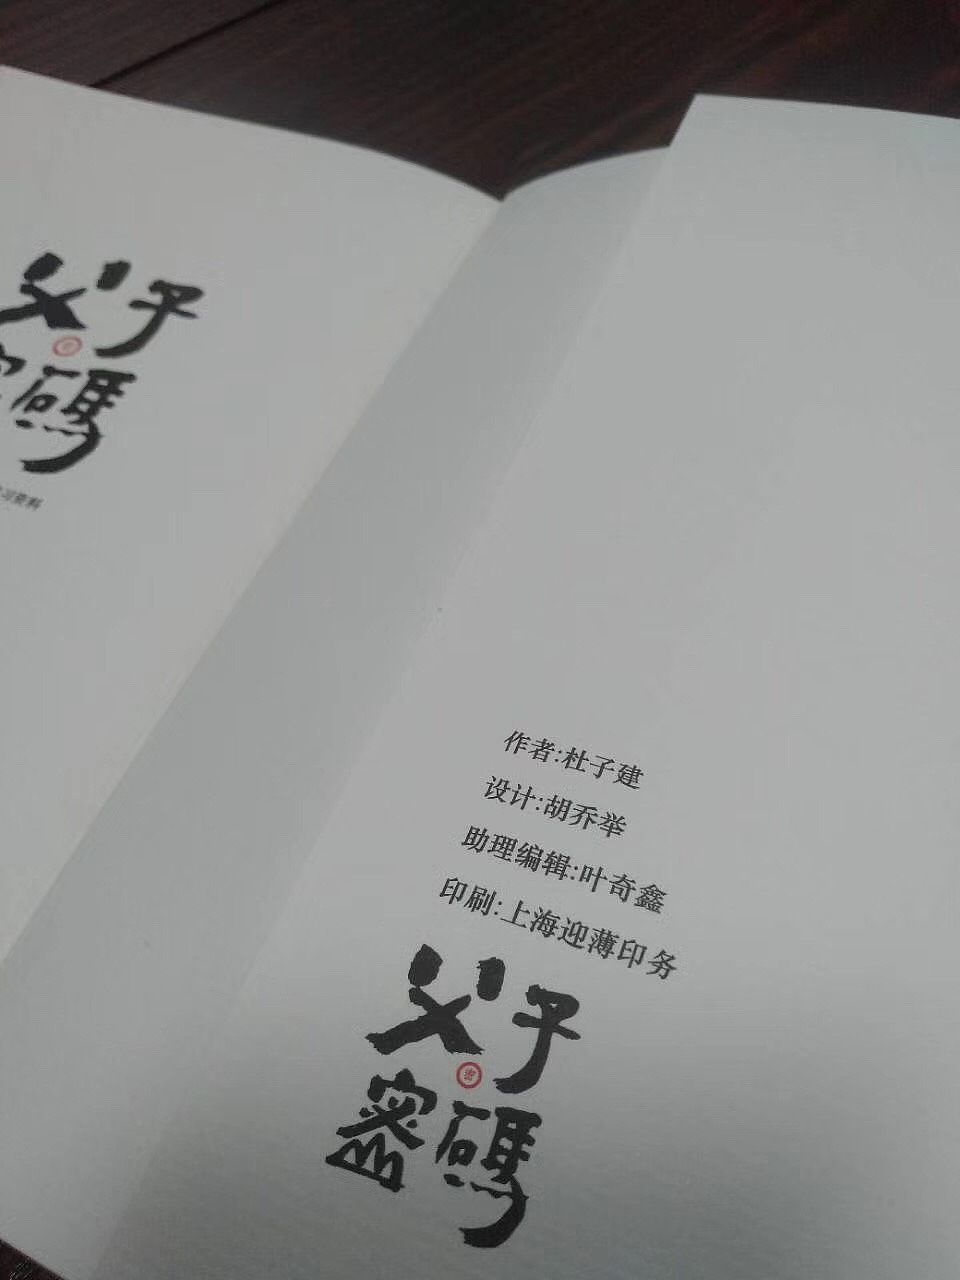 父子
碼
习资料
作者:杜子建
设计:胡乔举
助理编辑:叶奇鑫
印刷:上海迎薄印务
父子
密碼